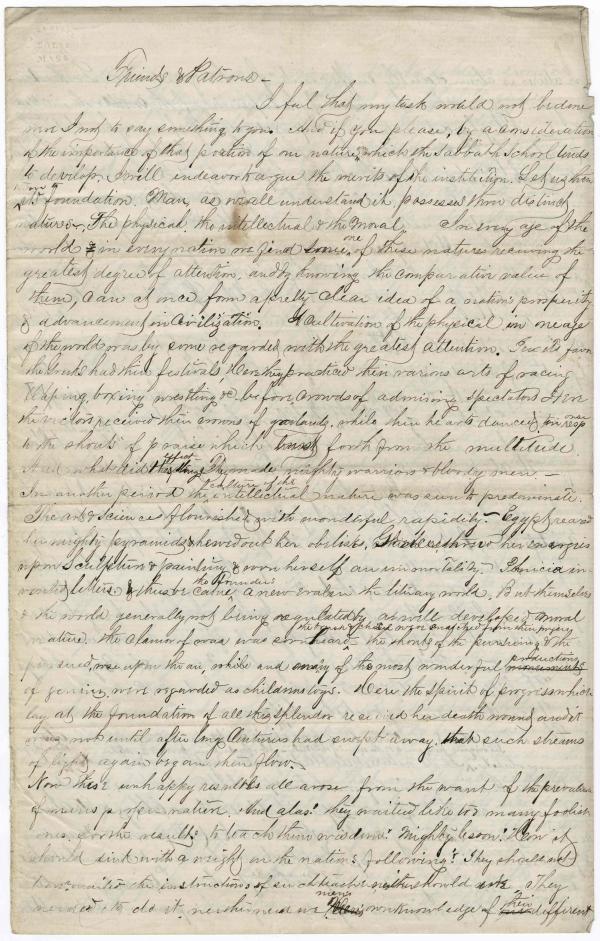 Friends & Patrons —
I feel that my task would not be done
were I not to say something to you. And if you please, by a consideration
of the importance of that portion of our nature, which the Sabbath School tends
to develop, I will endeavor argue the merits of the institution. Let us then
foundation. Man, as we all understand it, possesses three distinct
natures. The physical, the intellectual & the moral. In every age of the
world & in every nation we find some one of these natures receiving the
greatest degree of attention, and by knowing the comparative value of
them, can at once form a pretty clear idea of a nation's prosperity
& advancement in Civilization. A cultivation of the physical in one age
of the world was by some regarded with the greatest attention. To its favor
the Greeks had their festivals, Here they practiced their various arts of racing
leaping, boxing wrestling &c. before crowds of admiring spectators. Here
the victors received their crowns of garlands. while their hearts danced in response
to the shouts of praise which burst forth from the multitude.
And what did this effect They made mighty warriors & bloody men —
In another period the culture of the intellectual nature was seen to predominate.
The arts & Sciences flourished with wonderful rapidity. Egypt reared
her mighty pyramids & hewed out her obelisk, her energies
upon Sculpture & painting & won herself an immortality. Phenicia in-
vented letters & thus became the founder a new era in the literary world. But themselves
& the world generally not being regulated by a well developed moral
nature. the clamor of war was soon heard, the shouts of the pursuing & the
pursued, rose upon the air, while and many of the most wonderful productions monuments
of genius, were regarded as childrens toys. Here the Spirit of progress which
lay at the foundation of all this splendor received her death wound and it
was not until after long Centuries had swept away, that such streams
of light again began their flow.—
Now these unhappy results all arose from the want of the
of mens proper nature. And alas! they waited like too many foolish
ones, for the results to teach them wisdom! Mighty lesson! How it
should sink with a weight on the nations following! They should not
have waited the instructions of such teachers neither should we. They
needed to do it, neither need we. mens own knowledge of their different